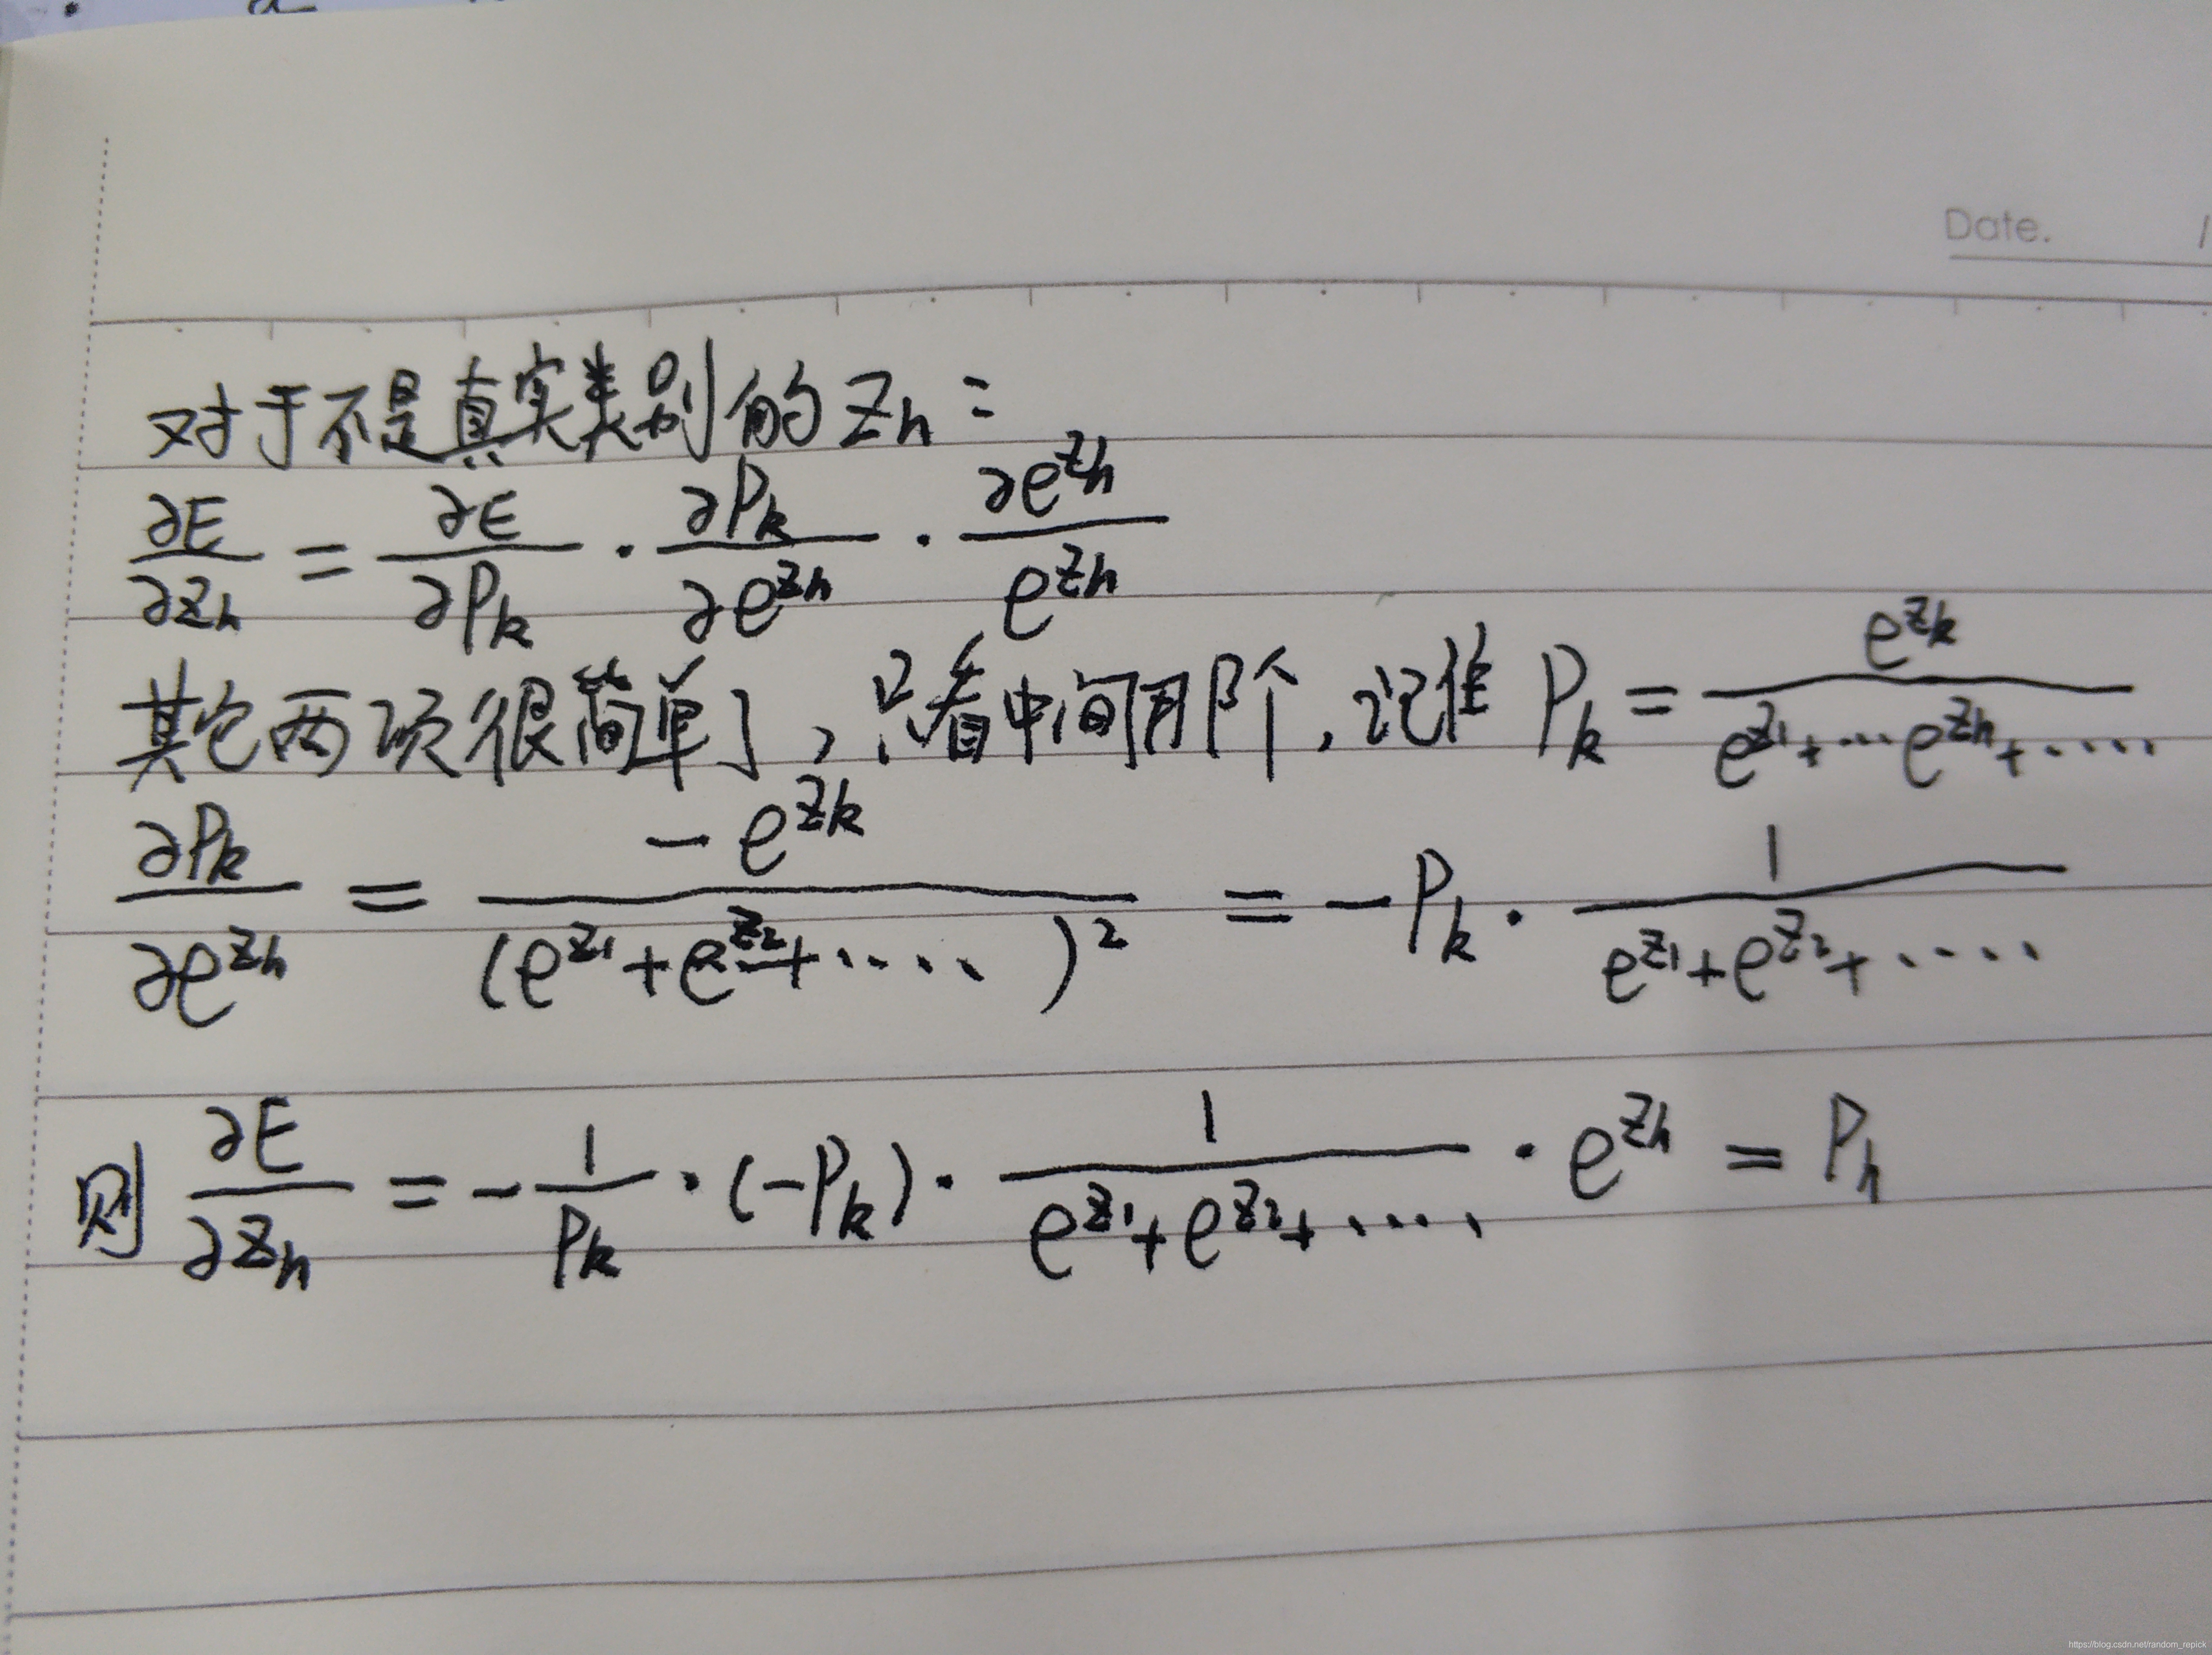 Date. /
对于不是真实类别的 Zn:
∂E/∂Zn = ∂E/∂Pk · ∂Pk/∂e^Zn · ∂e^Zn/e^Zn
其它两项很简单了,只看中间那个,记住 Pk = e^Zk/(e^Z1+…e^Zn+.....)
∂Pk/∂e^Zn = -e^Zk/(e^Z1+e^Z2+....)^2 = -Pk · 1/(e^Z1+e^Z2+....)
则 ∂E/∂Zn = -1/Pk · (-Pk) · 1/(e^Z1+e^Z2+....) · e^Zn = Pn
https://blog.csdn.net/random_repick